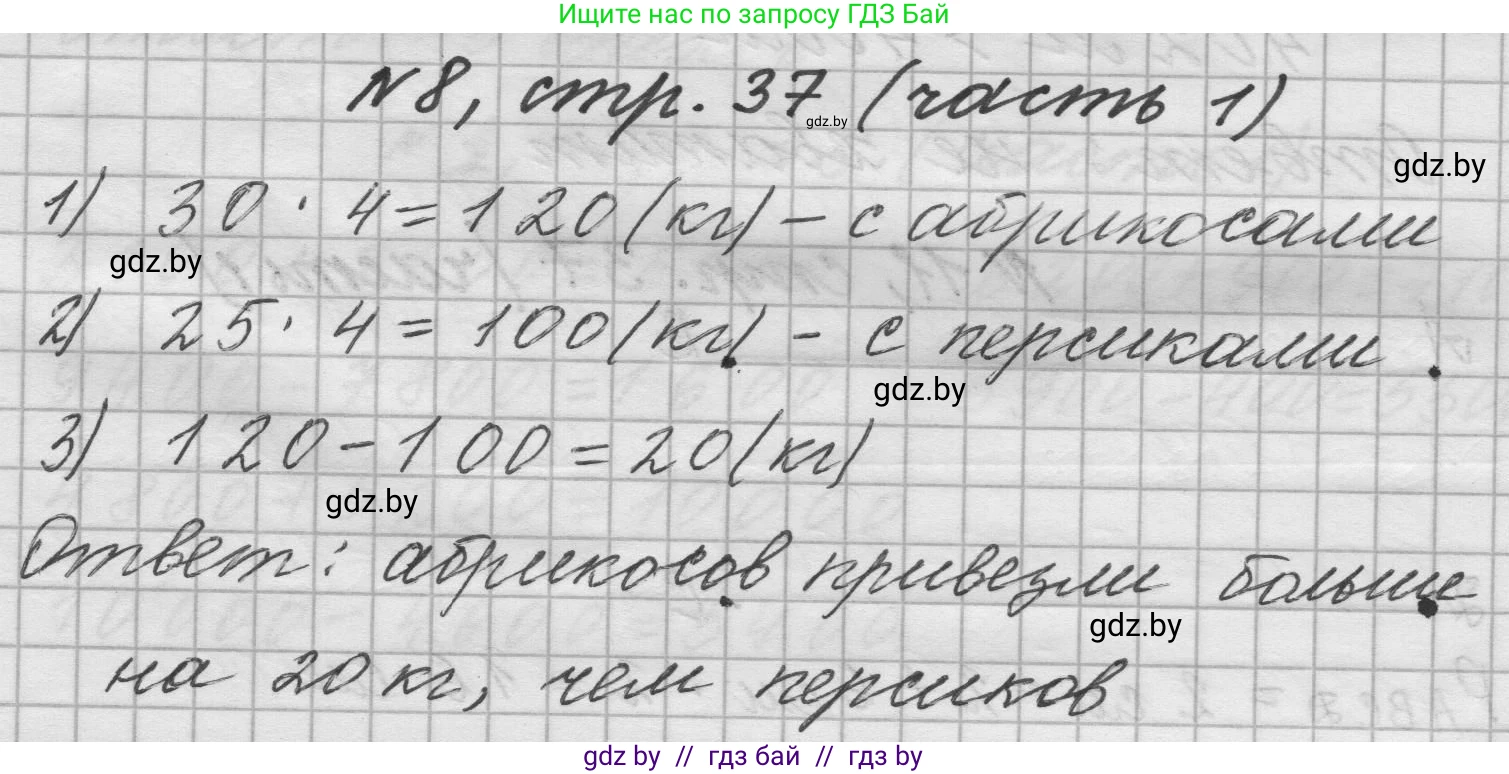 Ищите нас по запросу ГДЗ Бай
№8, стр. 37 (часть 1)
gdz.by
gdz.by
1) 30 · 4 = 120 (кг) – с абрикосами
gdz.by
2) 25 · 4 = 100 (кг) – с персиками
gdz.by
3) 120 – 100 = 20 (кг)
gdz.by
Ответ: абрикосов привезли больше
gdz.by
на 20 кг, чем персиков
gdz.by // гдз бай // гдз by